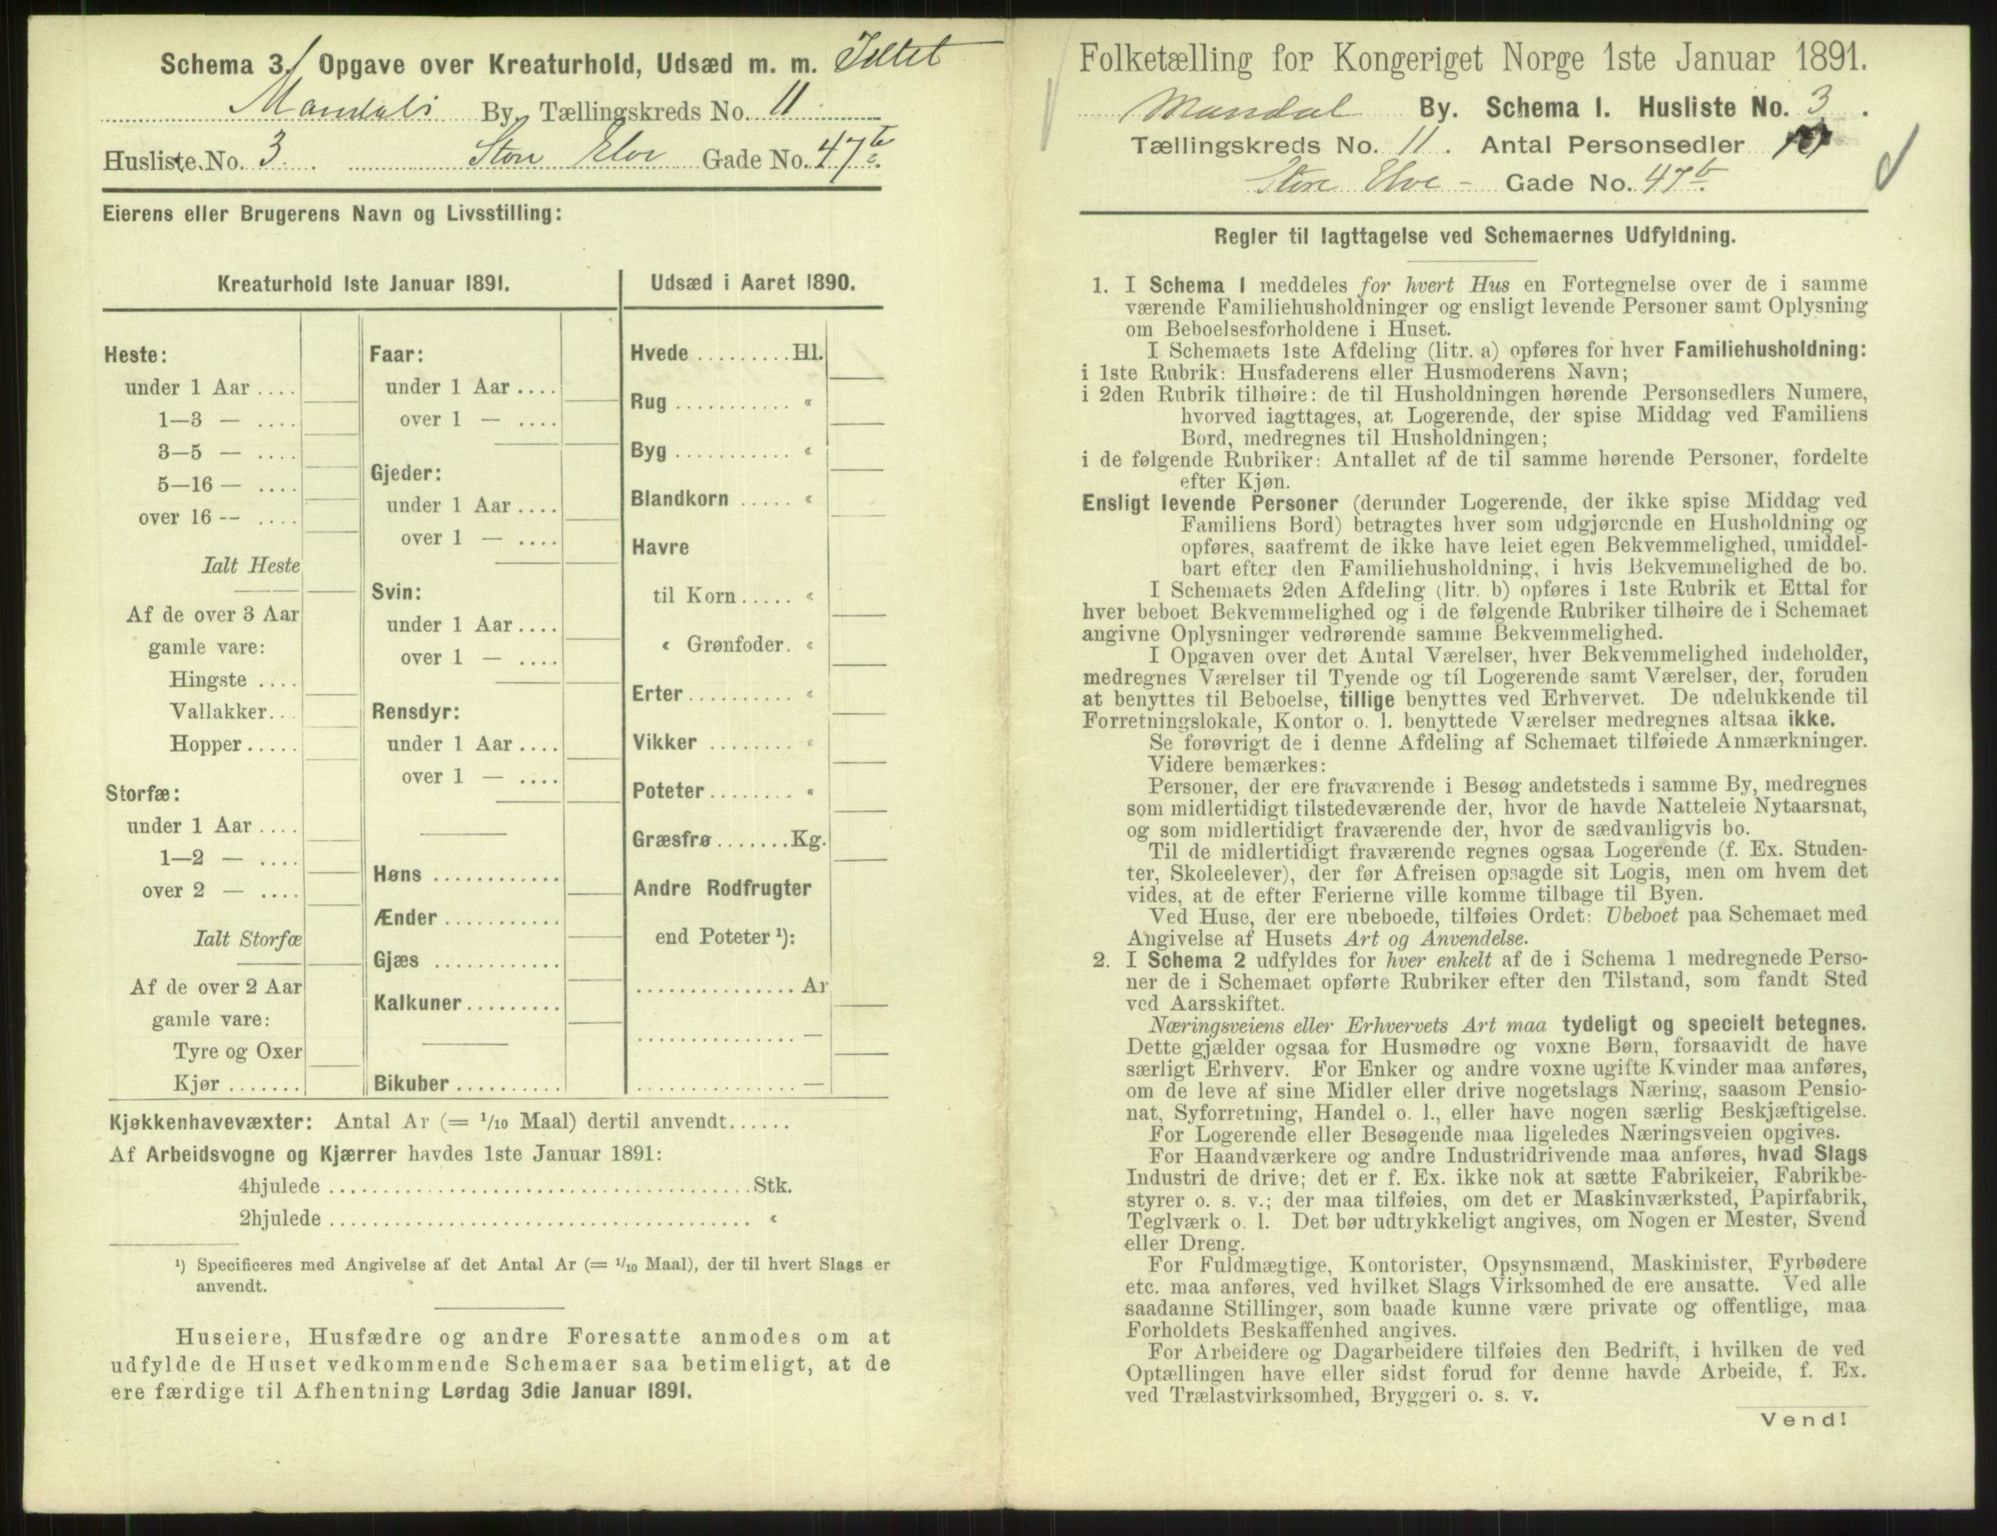 Schema 3. Opgave over Kreaturhold, Udsæd m. m. Intet
Mandals By Tællingskreds No. 11
Husliste No. 3. Store Elve Gade No. 47b
Eierens eller Brugerens Navn og Livsstilling:
Kreaturhold 1ste Januar 1891.
Heste:
under 1 Aar ....
1—3 — ....
3—5 — ....
5—16 — ....
over 16 -- ....
Ialt Heste
Af de over 3 Aar
gamle vare:
Hingste ....
Vallakker...
Hopper.....
Storfæ:
under 1 Aar ....
1—2 — ....
over 2 — ....
Ialt Storfæ
Af de over 2 Aar
gamle vare:
Tyre og Oxer
Kjør .......
Faar:
under 1 Aar ....
over 1 — ....
Gjeder:
under 1 Aar ....
over 1 — ....
Svin:
under 1 Aar ....
over 1 — ....
Rensdyr:
under 1 Aar ....
over 1 — ....
Høns ............
Ænder ...........
Gjæs ............
Kalkuner.........
Bikuber ..........
Udsæd i Aaret 1890.
Hvede .........Hl.
Rug ........... «
Byg ........... «
Blandkorn ..... «
Havre
til Korn..... «
« Grønfoder. «
Erter.......... «
Vikker ........ «
Poteter........ «
Græsfrø.......Kg.
Andre Rodfrugter
end Poteter ¹):
...............Ar
............... —
............... —
Kjøkkenhavevæxter: Antal Ar (= 1/10 Maal) dertil anvendt......
Af Arbeidsvogne og Kjærrer havdes 1ste Januar 1891:
4hjulede ........................................Stk.
2hjulede ........................................ «
¹) Specificeres med Angivelse af det Antal Ar (= 1/10 Maal), der til hvert Slags er
anvendt.
Huseiere, Husfædre og andre Foresatte anmodes om at
udfylde de Huset vedkommende Schemaer saa betimeligt, at de
ere færdige til Afhentning Lørdag 3die Januar 1891.
Folketælling for Kongeriget Norge 1ste Januar 1891.
Mandal By. Schema I. Husliste No. 3.
Tællingskreds No. 11. Antal Personsedler
Store Elve - Gade No. 47b.
Regler til Iagttagelse ved Schemaernes Udfyldning.
1. I Schema I meddeles for hvert Hus en Fortegnelse over de i samme
værende Familiehusholdninger og ensligt levende Personer samt Oplysning
om Beboelsesforholdene i Huset.
I Schemaets 1ste Afdeling (litr. a) opføres for hver Familiehusholdning:
i 1ste Rubrik: Husfaderens eller Husmoderens Navn;
i 2den Rubrik tilhøire: de til Husholdningen hørende Personsedlers Numere,
hvorved iagttages, at Logerende, der spise Middag ved Familiens
Bord, medregnes til Husholdningen;
i de følgende Rubriker: Antallet af de til samme hørende Personer, fordelte
efter Kjøn.
Ensligt levende Personer (derunder Logerende, der ikke spise Middag ved
Familiens Bord) betragtes hver som udgjørende en Husholdning og
opføres, saafremt de ikke have leiet egen Bekvemmelighed, umiddel-
bart efter den Familiehusholdning, i hvis Bekvemmelighed de bo.
I Schemaets 2den Afdeling (litr. b) opføres i 1ste Rubrik et Ettal for
hver beboet Bekvemmelighed og i de følgende Rubriker tilhøire de i Schemaet
angivne Oplysninger vedrørende samme Bekvemmelighed.
I Opgaven over det Antal Værelser, hver Bekvemmelighed indeholder,
medregnes Værelser til Tyende og til Logerende samt Værelser, der, foruden
at benyttes til Beboelse, tillige benyttes ved Erhvervet. De udelukkende til
Forretningslokale, Kontor o. l. benyttede Værelser medregnes altsaa ikke.
Se forøvrigt de i denne Afdeling af Schemaet tilføiede Anmærkninger.
Videre bemærkes:
Personer, der ere fraværende i Besøg andetsteds i samme By, medregnes
som midlertidigt tilstedeværende der, hvor de havde Natteleie Nytaarsnat,
og som midlertidigt fraværende der, hvor de sædvanligvis bo.
Til de midlertidigt fraværende regnes ogsaa Logerende (f. Ex. Studen-
ter, Skoleelever), der før Afreisen opsagde sit Logis, men om hvem det
vides, at de efter Ferierne ville komme tilbage til Byen.
Ved Huse, der ere ubeboede, tilføies Ordet: Ubeboet paa Schemaet med
Angivelse af Husets Art og Anvendelse.
2. I Schema 2 udfyldes for hver enkelt af de i Schema 1 medregnede Perso-
ner de i Schemaet opførte Rubriker efter den Tilstand, som fandt Sted
ved Aarsskiftet.
Næringsveiens eller Erhvervets Art maa tydeligt og specielt betegnes.
Dette gjælder ogsaa for Husmødre og voxne Børn, forsaavidt de have
særligt Erhverv. For Enker og andre voxne ugifte Kvinder maa anføres,
om de leve af sine Midler eller drive nogetslags Næring, saasom Pensio-
nat, Syforretning, Handel o. l., eller have nogen særlig Beskjæftigelse.
For Logerende eller Besøgende maa ligeledes Næringsveien opgives.
For Haandværkere og andre Industridrivende maa anføres, hvad Slags
Industri de drive; det er f. Ex. ikke nok at sætte Fabrikeier, Fabrikbe-
styrer o. s. v.; der maa tilføies, om det er Maskinværksted, Papirfabrik,
Teglværk o. l. Det bør udtrykkeligt angives, om Nogen er Mester, Svend
eller Dreng.
For Fuldmægtige, Kontorister, Opsynsmænd, Maskinister, Fyrbødere
etc. maa anføres, ved hvilket Slags Virksomhed de ere ansatte. Ved alle
saadanne Stillinger, som baade kunne være private og offentlige, maa
Forholdets Beskaffenhed angives.
For Arbeidere og Dagarbeidere tilføies den Bedrift, i hvilken de ved
Optællingen have eller sidst forud for denne havde Arbeide, f. Ex.
ved Trælastvirksomhed, Bryggeri o. s. v.
Vend!